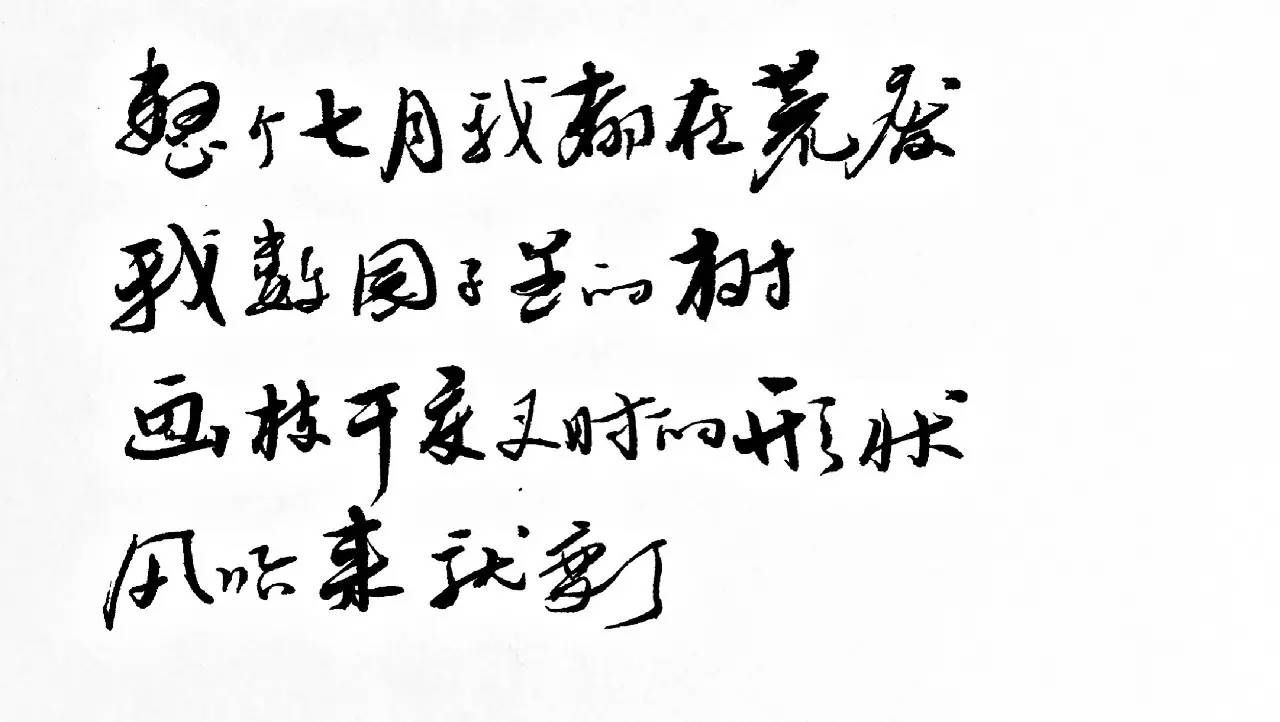 整个七月我都在荒废
我数园子里的树
画枝干交叉时的形状
风吹来就变了